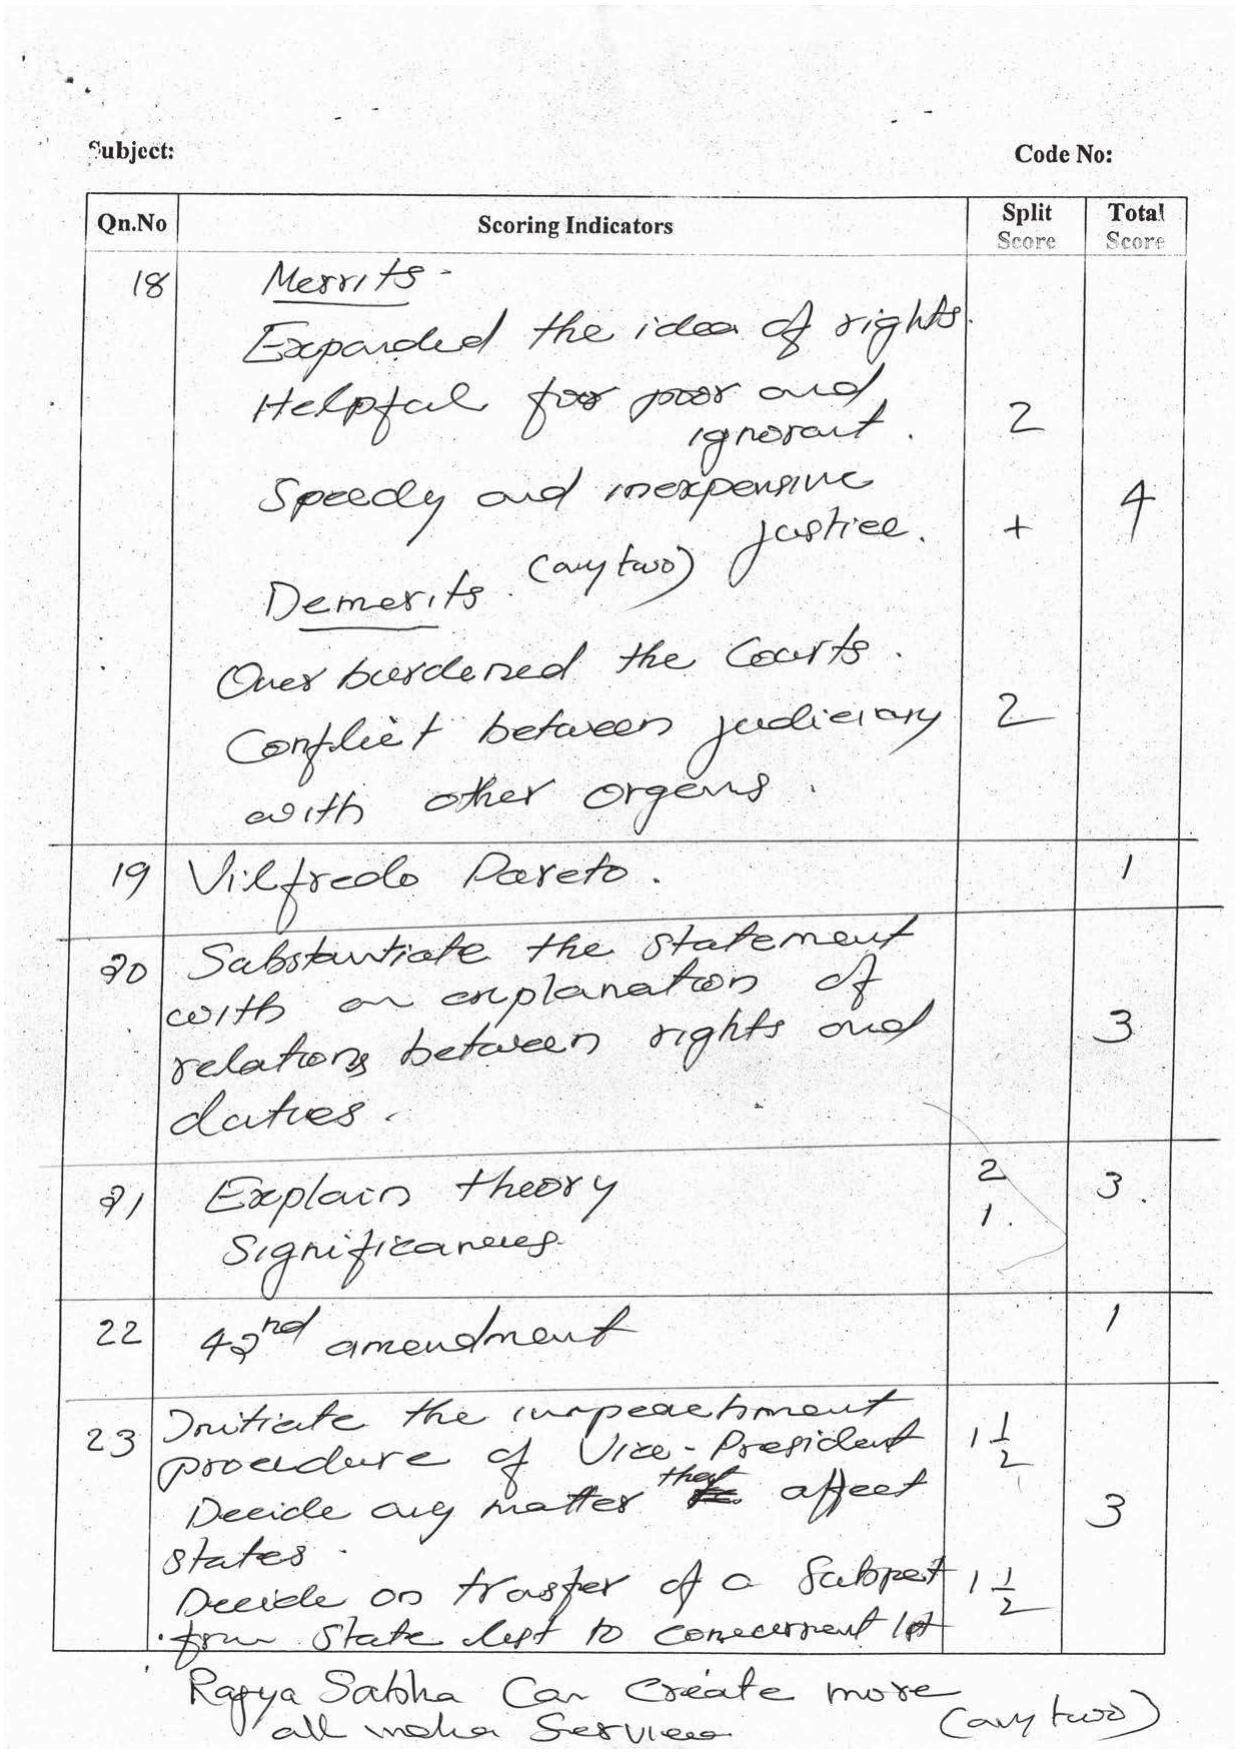 Subject:
Code No:
Qn.No
Scoring Indicators
Split Score
Total Score
18
Merrits -
Expanded the idea of rights.
Helpful for poor and
ignorant.
2
Speedy and inexpensive
4
justice.
+
(any two)
Demerits.
Over burdened the Courts.
Conflict between judiciary
2
with other organs.
19 Vilfredo Pareto. 1
20 Substantiate the statement
with an explanation of
relations between rights and
3
duties.
21 Explain theory 2 3.
Significances. 1.
22 42nd amendment 1
23 Initiate the impeachment
procedure of Vice-President 1 1/2
Decide any matter that affect
3
states.
Decide on trasfer of a Subject 1 1/2
from State list to concurrent list
Rajya Sabha Can Create more
all India Services
(any two)